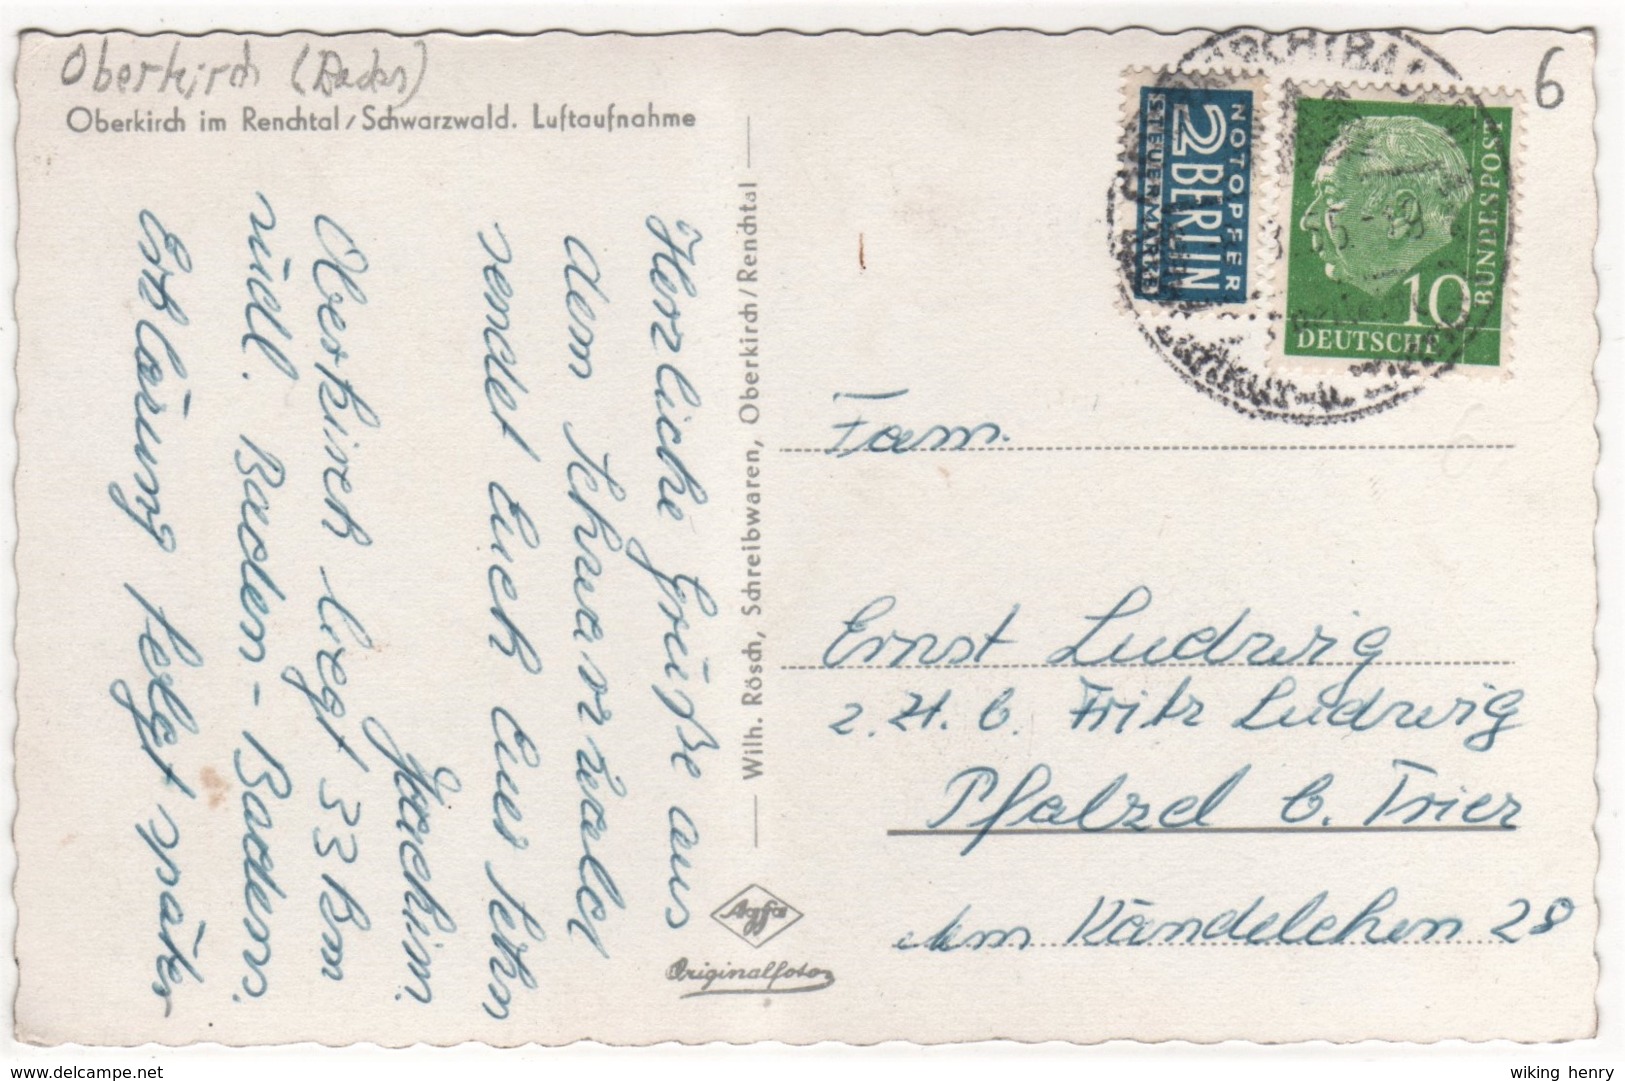 Oberkirch (Baden)
Oberkirch im Renchtal/Schwarzwald. Luftaufnahme
6
NOTOPFER
2 BERLIN
STEUERMARKE
DEUTSCHE
BUNDESPOST
10
Herzliche Grüße aus
dem Schwarzwald
sendet Euch Euer Sohn
Joachim.
Oberkirch liegt 33 km
südl. Baden-Badens.
Erklärung folgt später
Wilh. Rösch, Schreibwaren, Oberkirch/Renchtal
Agfa
Originalfoto
Fam.
Ernst Ludwig
z. H. b. Fritz Ludwig
Pfalzel b. Trier
Am Kändelchen 28
wiking henry